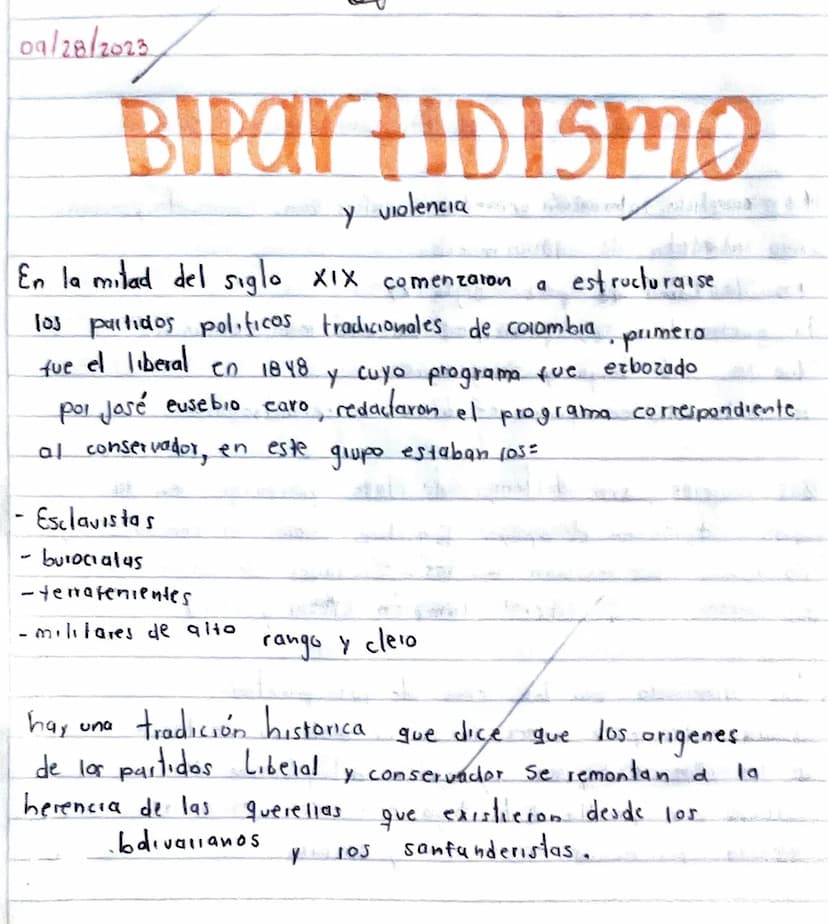 09/28/2023
BIPartIDISmO
y violencia
En la mitad del siglo XIX comenzaron a estructurarse
los partidos politicos tradicionales de colombia, primero
fue el liberal en 1848 y cuyo programa fue ezbozado
por José eusebio caro, redactaron el programa correspondiente
al conservador, en este grupo estaban los=
- Esclavistas
- burocratas
- terratenientes
- militares de alto rango y clero
hay una tradición historica que dice que los origenes
de los partidos Liberal y conservador se remontan a la
herencia de las querellas que existieron desde los
bolivarianos y los santanderistas.